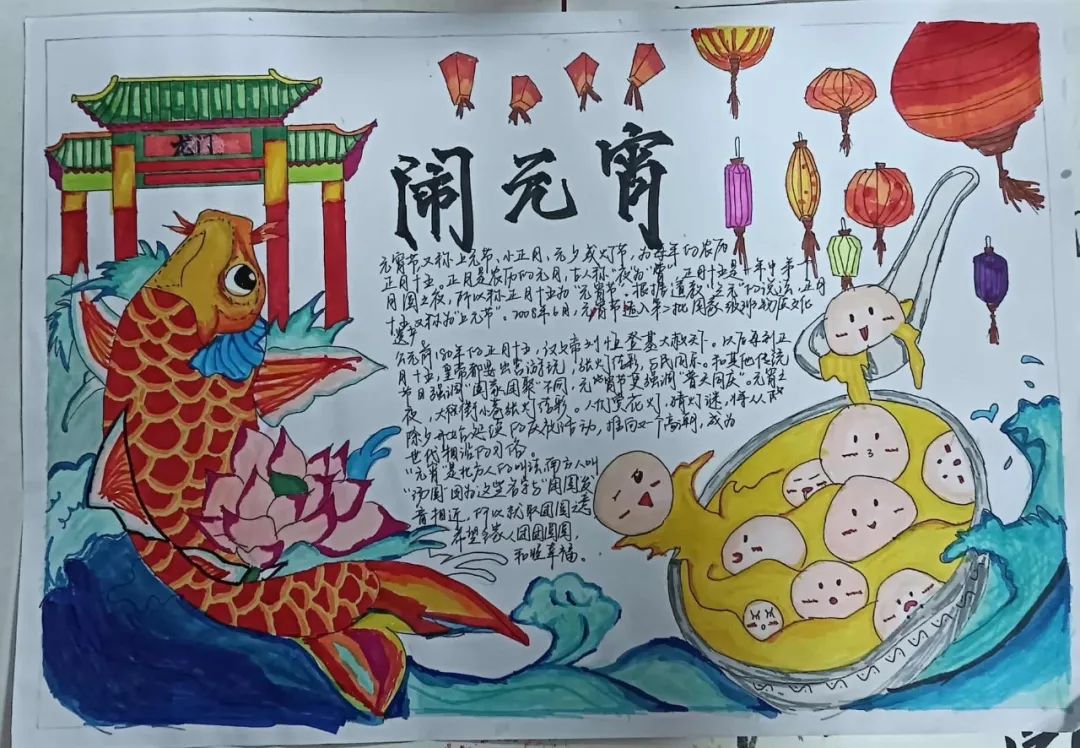 龙门
闹元宵
元宵节又称上元节、小正月、元夕或灯节，为每年的农历
正月十五。正月是农历的元月，古人称"夜为"宵"，正月十五是一年中第一个
月圆之夜，所以称正月十五为"元宵节"。根据道教"三元"的说法，正月
十五又称为"上元节"。2008年6月，元宵节入第二批国家级非物质文化
遗产。
公元前180年的正月十五，汉文帝刘恒登基大赦天下。以后每到正
月十五，皇帝都要出宫游玩，张灯结彩，与民同乐。和其他传统
节日强调"阖家团聚"不同，元宵节更强调"普天同庆"。元宵之
夜，大街小巷张灯结彩。人们赏花灯，猜灯谜，将从
除夕开始延续的庆祝活动，推向又一个高潮，成为
世代相沿的习俗。
"元宵"是北方人的叫法，南方人叫
"汤圆"因为这些名字与"团圆"
音相近，所以就取团圆之意
希望家人团团圆圆，
和睦幸福。